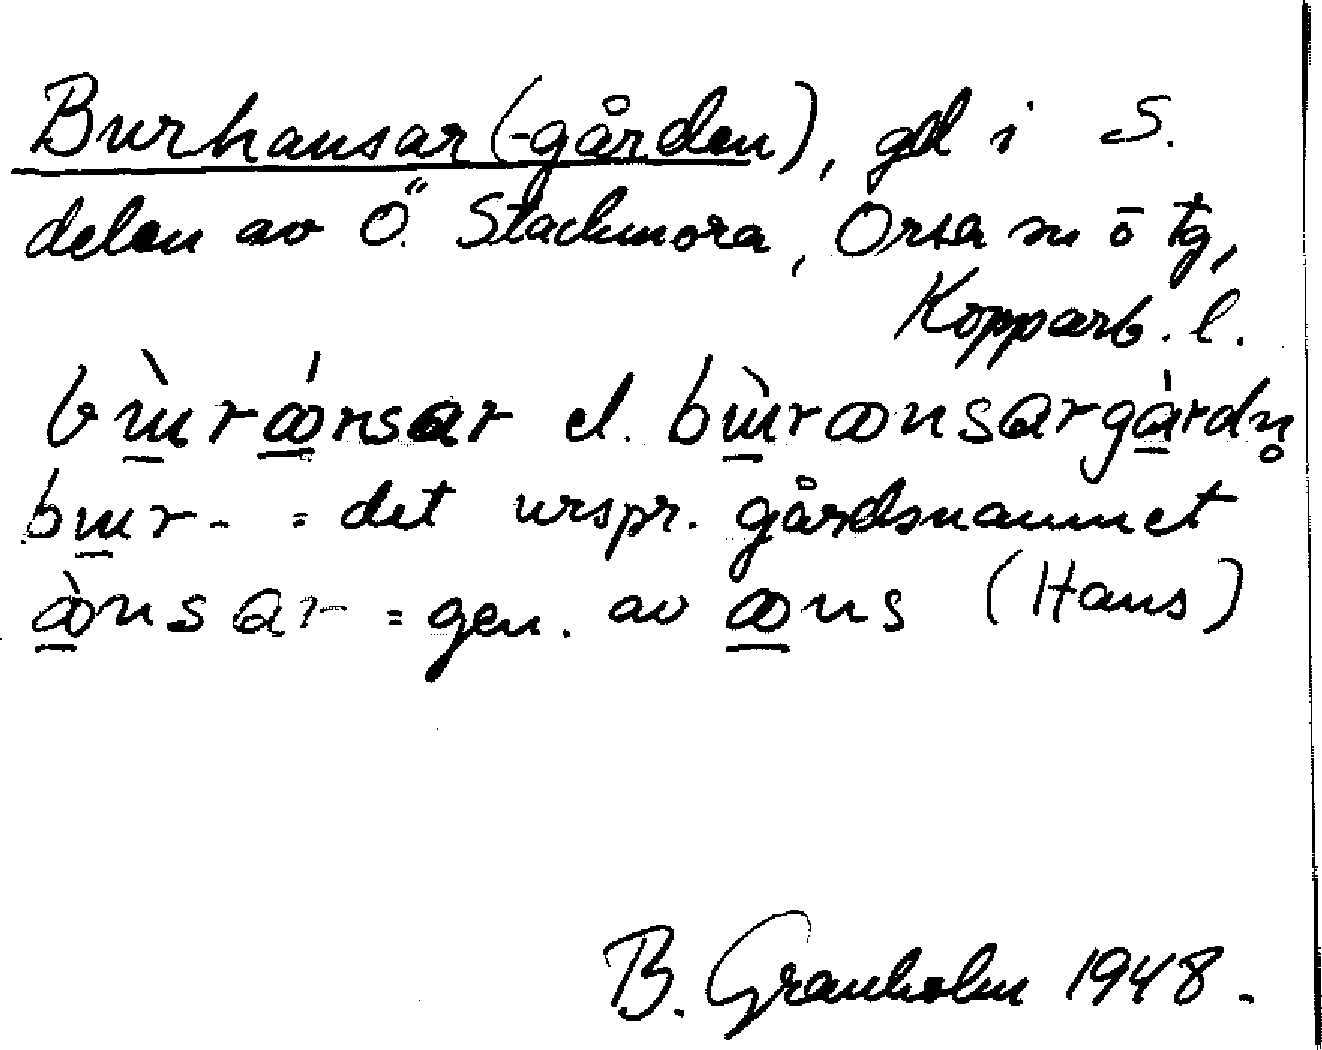 Burhansar (-gården), gd i S.
delen av Ö. Stackmora, Orsa sn o tg,
Kopparb. l.
bɯ̀rꝏ́nsar el. bɯ̀rꝏnsargárdn̥
bɯr- = det urspr. gårdsnamnet
ꝏ̀nsar = gen. av ꝏns (Hans)
B. Granholm 1948.